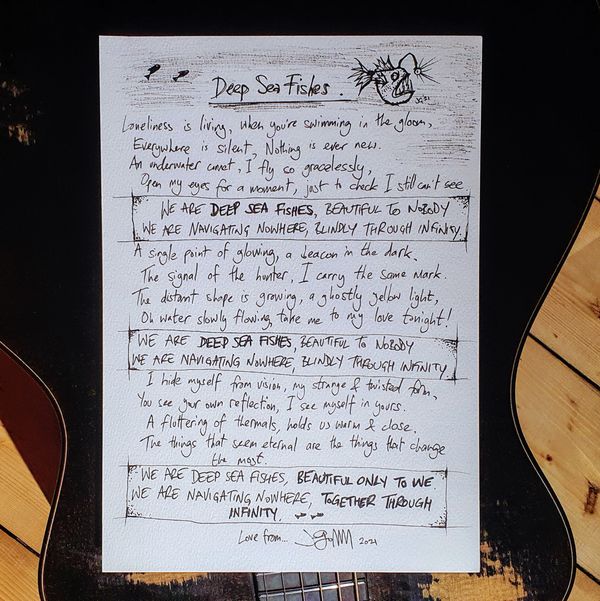 Deep Sea Fishes.
Loneliness is living, when you're swimming in the gloom,
Everywhere is silent, Nothing is ever new.
An underwater comet, I fly so gracelessly,
Open my eyes for a moment, just to check I still can't see.
WE ARE DEEP SEA FISHES, BEAUTIFUL TO NOBODY
WE ARE NAVIGATING NOWHERE, BLINDLY THROUGH INFINITY.
A single point of glowing, a beacon in the dark.
The signal of the hunter, I carry the same mark.
The distant shape is growing, a ghostly yellow light,
Oh water slowly flowing, take me to my love tonight!
WE ARE DEEP SEA FISHES, BEAUTIFUL TO NOBODY
WE ARE NAVIGATING NOWHERE, BLINDLY THROUGH INFINITY
I hide myself from vision, my strange & twisted form,
You see your own reflection, I see myself in yours.
A fluttering of thermals, holds us warm & close.
The things that seem eternal are the things that change
the most.
WE ARE DEEP SEA FISHES, BEAUTIFUL ONLY TO WE
WE ARE NAVIGATING NOWHERE, TOGETHER THROUGH
INFINITY.
Love from... 2021